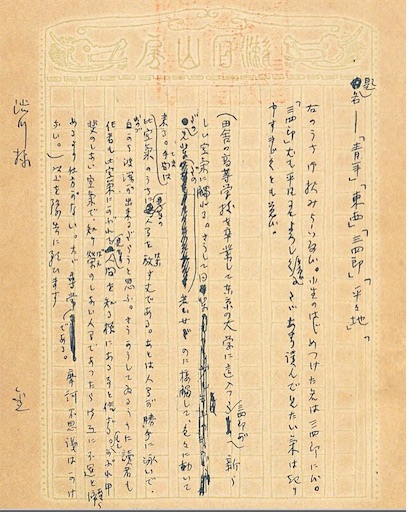 漱石山房
題名―「青年」「東西」「三四郎」「平々地」
右のうち御択み被下度候。小生のはじめつけた名は三四郎に候。
「三四郎」尤も平凡にてよろしくと存候。たゞあまり読んで見たい気は起り
申すまじくとも覚候。
(田舎の高等学校を卒業して東京の大学に這入つた三四郎が新ら
しい空気に触れる。さうして同輩だの先輩だの若い女だのに接触して、色々に動いて
来る。手間は
此空気のうちに是等の人間を放す丈である。あとは人間が勝手に泳いで、
自ら波瀾が出来るだらうと思ふ。さうかうしてゐるうちに読者も
作者も此空気にかぶれて是等の人間を知る様になる事と信ずる。もしかぶれ甲
斐のしない空気で、知り栄のしない人間であつたら御互に不運と諦め
るより仕方がない。たゞ尋常である。摩訶不思議はかけ
ない。)以上を予告に願ひます
金
渋川様